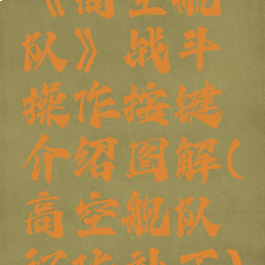 《高空舰
队》战斗
操作按键
介绍图解(
高空舰队